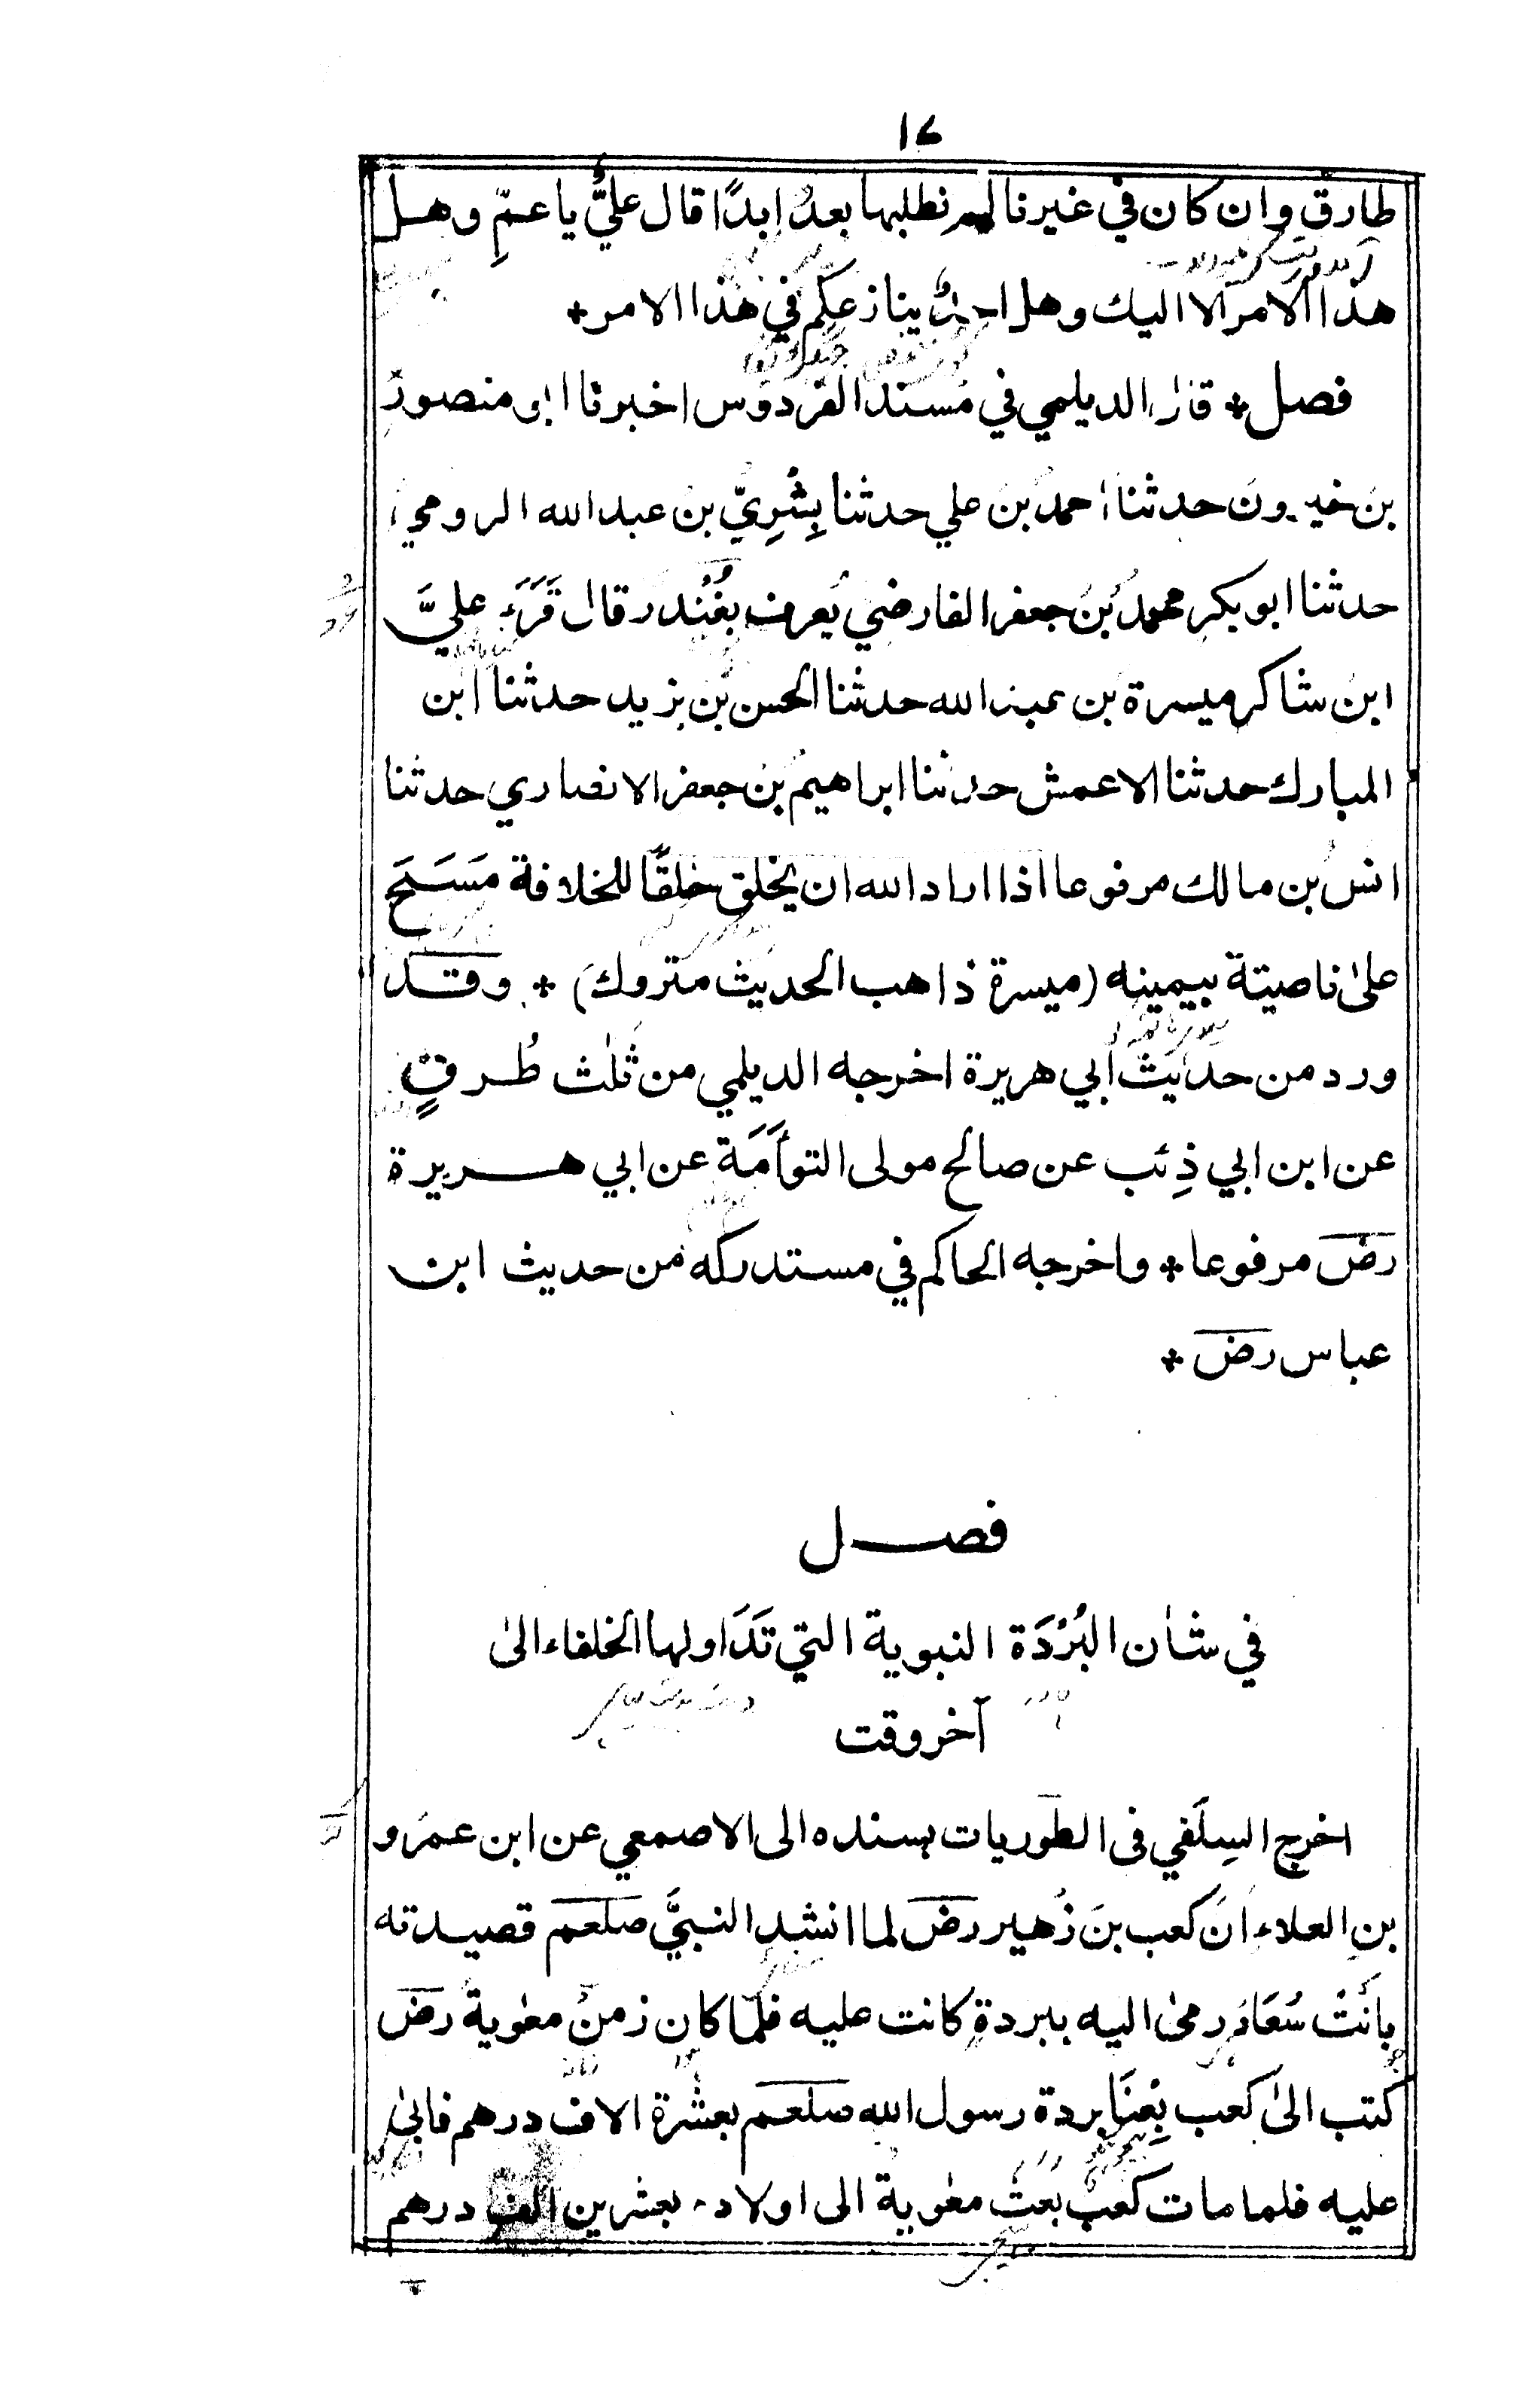 ١٤
طارق وان كان في غيرنا لم نطلبها بعدُ ابدًا قال عليٌّ يا عمِّ وهل
هذا الامر الا اليك وهل احدٌ ينازعكم في هذا الامر *
فصل * قال الديلمي في مسند الفردوس اخبرنا ابو منصور
بن خيرون حدثنا احمد بن علي حدثنا بِشْرِيّ بن عبد الله الرومي
حدثنا ابو بكر محمد بن جعفر الفارضي يُعرف بغُنْدر قال قَرَءَ عليَّ
ابن شاكر ميسرة بن عبد الله حدثنا الحسن بن يزيد حدثنا ابن
المبارك حدثنا الاعمش حدثنا ابراهيم بن جعفر الانصاري حدثنا
انس بن مالك مرفوعا اذا اراد الله ان يخلق خلقًا للخلافة مَسَحَ
على ناصيتة بيمينه (ميسرة ذاهب الحديث متروك) * وقد
ورد من حديث ابي هريرة اخرجه الديلمي من ثلٰث طُرقٍ
عن ابن ابي ذِئب عن صالح مولى التوأَمَة عن ابي هريرة
رض مرفوعا * واخرجه الحاكم في مستدركه من حديث ابن
عباس رض *
فصل
في شان البُرْدَة النبوية التي تَدَاولها الخلفاء الىٰ
آخر وقت
اخرج السِلَفي فى الطوريات بسنده الى الاصمعي عن ابن عمرو
بن العلاء ان كعب بن زُهير رض لما انشد النبيَّ صلعم قصيدته
بانَتْ سُعَاد رمىٰ اليه ببردةٍ كانت عليه فلما كان زمنُ معٰوية رض
كتب الىٰ كعب بِعْنَا بردة رسول الله صلعم بعشرة الاف درهم فابىٰ
عليه فلما مات كعبٌ بعث معٰوية الى اولاده بعشرين الف درهم